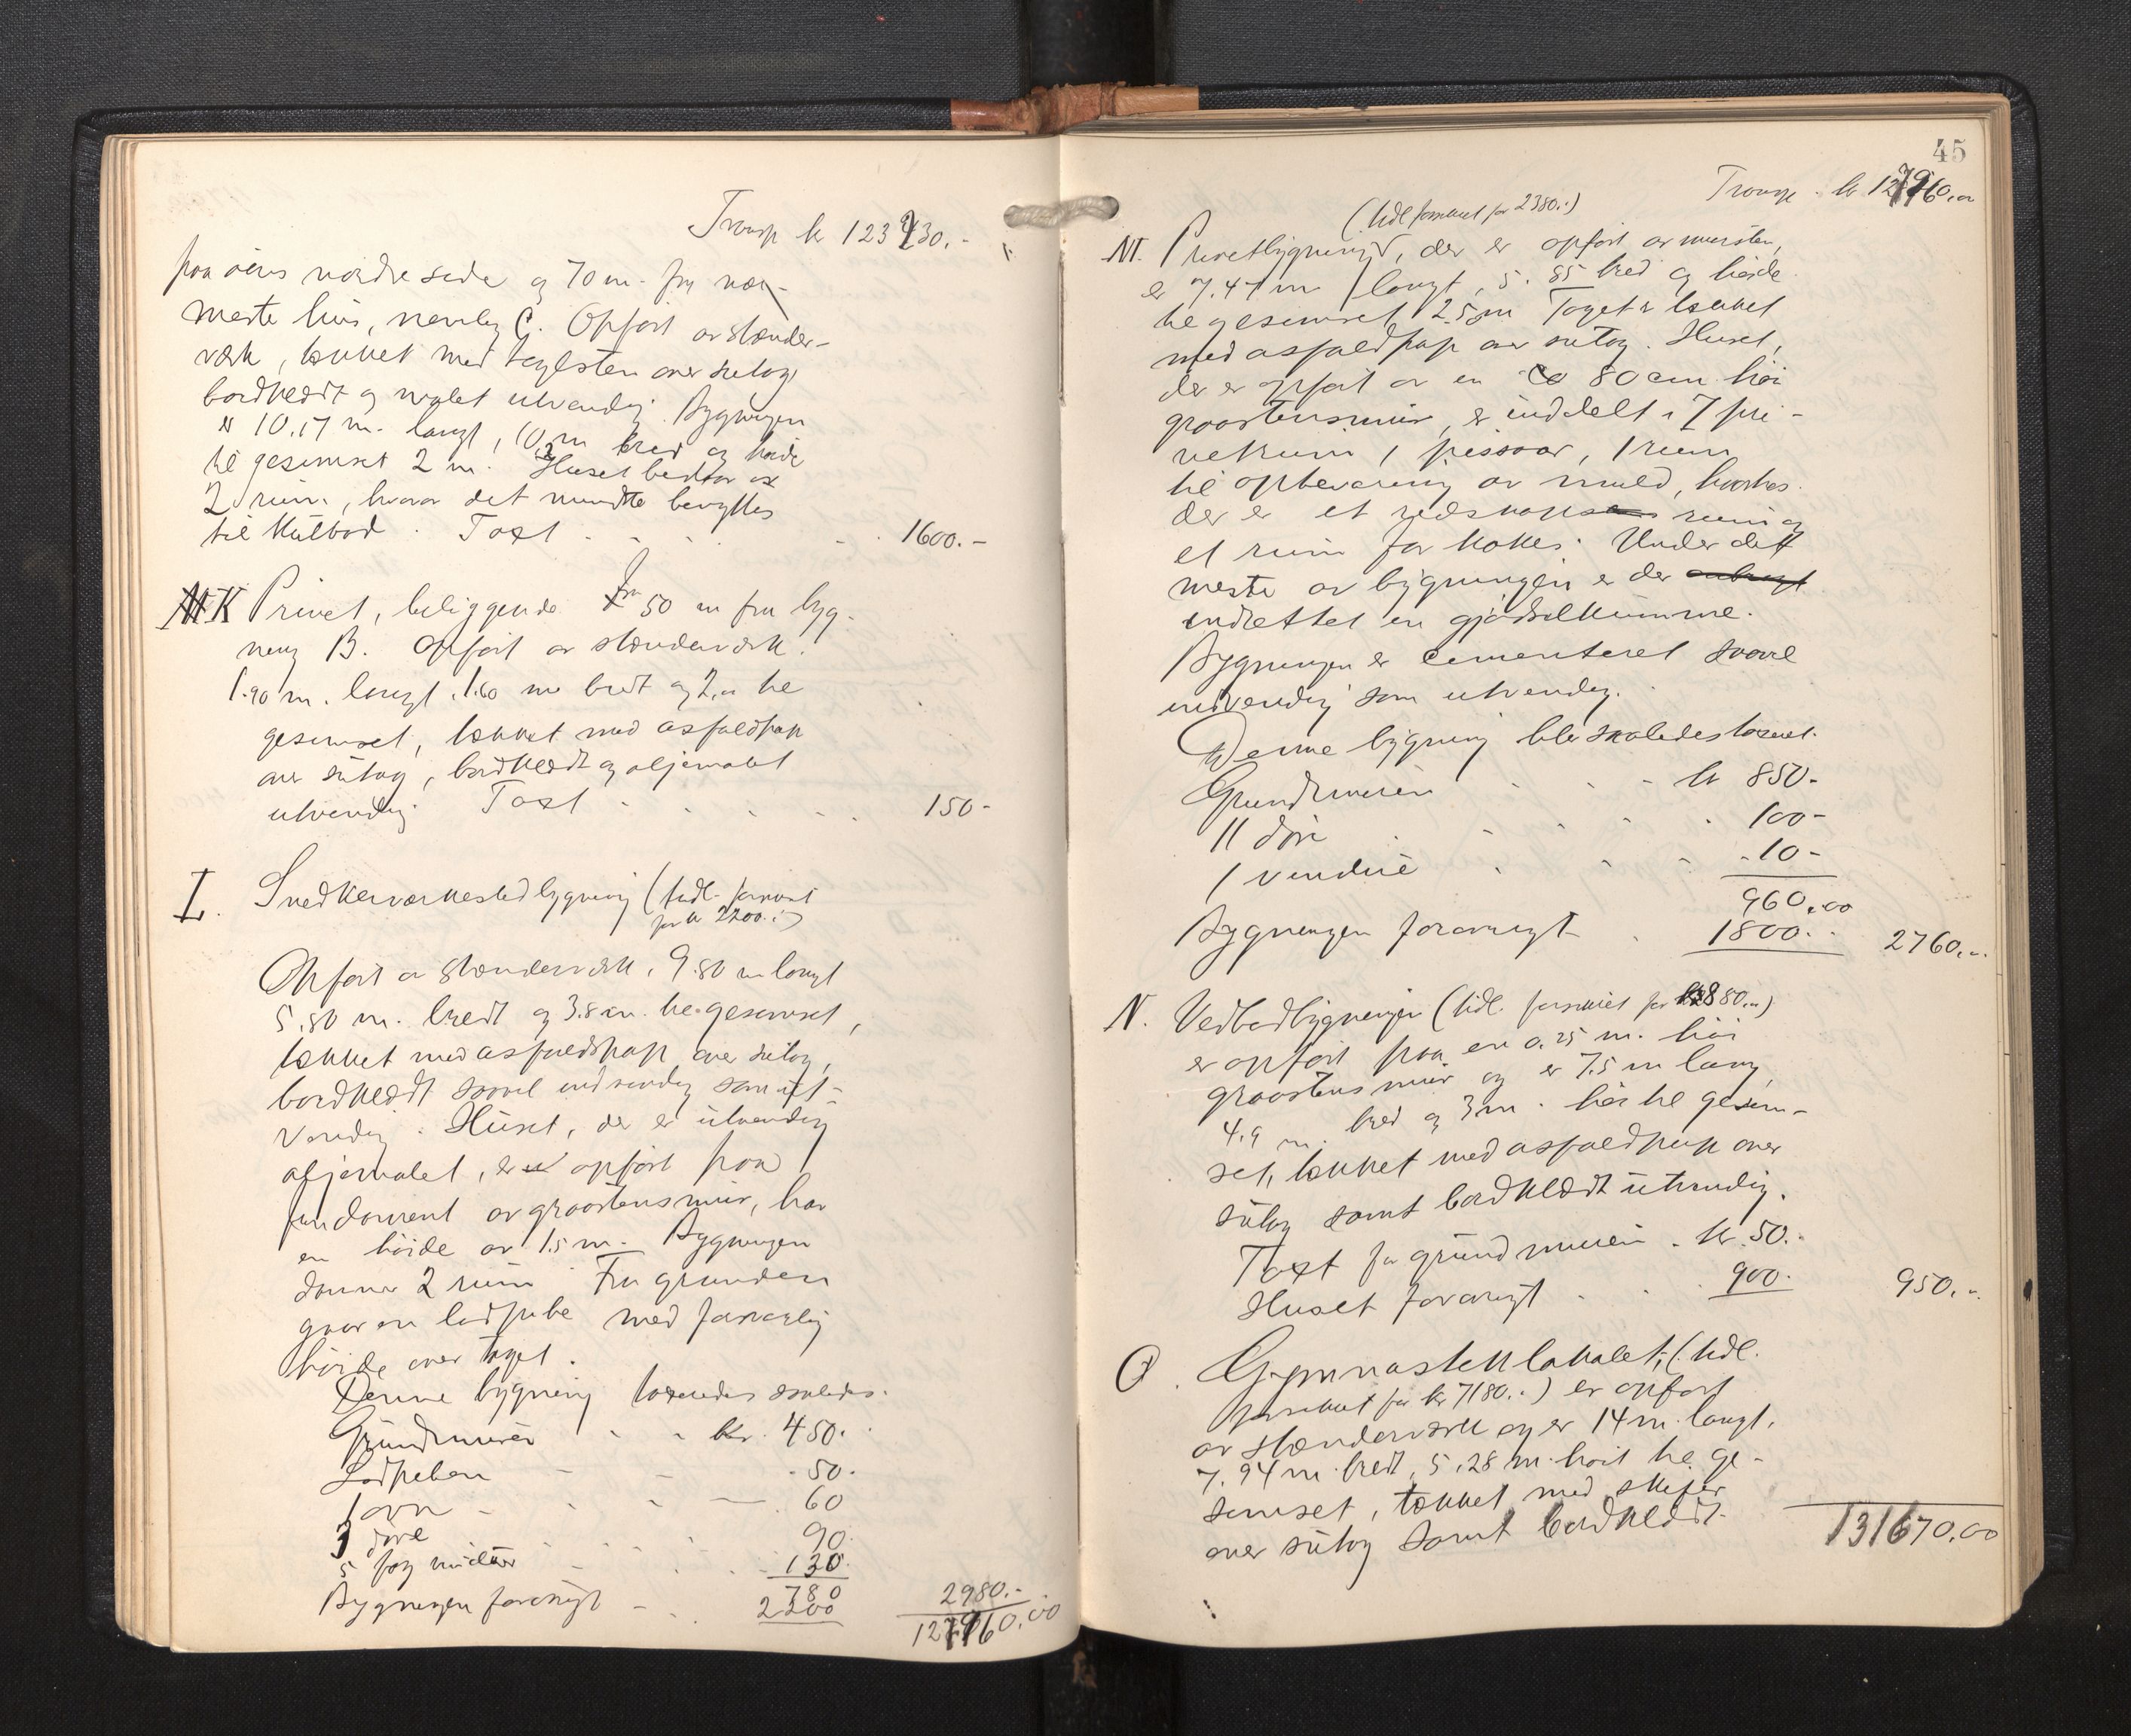 Transp kr 123230.-
paa øens nordre side og 70 m. fra nær-
meste hus, nemlig C. Opført av stænder-
værk, tækket med taglsten over sutag
bordklædt og malet utvendig. Bygningen
er 10.17 m. langt, 10 m bred og høide
til gesimset 2 m. Huset bestaar av
2 rum, hvorav det mindste benyttes
til Kulbod. Taxt 1600.-
K Privet, beliggende 50 m fra byg-
ning B. Opført av stænderværk.
1.90 m. langt, 1.60 m bredt og 2,- til
gesimset, tækket med asfaldpap
over sutag, bordklædt og oljemalet
utvendig. Taxt 150-
L. Snedkerværkstedbygning (tidl. forsikret
for kr 2200.-)
Opført av stænderværk, 9.80 m langt
5.80 m. bredt og 3.8 m. til gesimset,
tækket med asfaldpap over sutag,
bordklædt saavel indvendig som ut-
vendig. Huset, der er utvendig
oljemalet, er opført paa
fundament av graastensmur, har
en høide av 1.5 m. Bygningen
danner 2 rum. Fra grunden
gaar en ladpibe med forsvarlig
høide over taget.
Denne bygning taxeredes saaledes.
Grundmuren kr. 450.
Ladpiben 50.
1 ovn 60
3 døre 90.
5 fag vinduer 130.
780
Bygningen forøvrigt 2200 2980.-
127960.00
45
Transp. kr 127960.00
(tidl forsikret for 2380.-)
M. Privetbygning, der er opført av mursten,
er 7.47 m langt, 5.85 bred og høide
til gesimset 2.5 m Taget er tækket
med asfaldpap over sutag. Huset,
der er opført av en 80 cm høi
graastensmur, er inddelt i 7 pri-
vetrum, 1 pissoar, 1 rum
til opbevaring av muld, hvorhos
der er et redskaps rum og
et rum for kokes. Under det
meste av bygningen er der
indrettet en gjødselkumme.
Bygningen er cementeret saavel
indvendig som utvendig.
Denne bygning blev saaledes taxeret.
Grundmuren kr 850-
11 døre 100-
1 vindue 10-
960,00
Bygningen forøvrigt 1800.- 2760.-
N. Vedbodbygningen (tidl. forsikret for 880.-)
er opført paa en 0.25 m. høi
graastensmur og er 7.5 m lang,
4.9 m. bred og 3 m. høi til gesim-
set, tækket med asfaldpap over
sutag samt bordklædt utvendig.
Taxt for grundmuren. kr 50.-
Huset forøvrigt 900. 950.-
O. Gymnastiklokalet, (tidl.
forsikret for kr 7180.-) er opført
av stænderværk og er 14 m. langt,
7.94 m. bredt, 5.28 m. høit til ge-
simset, tækket med skifer
over sutag samt bordklædt.
131670.00